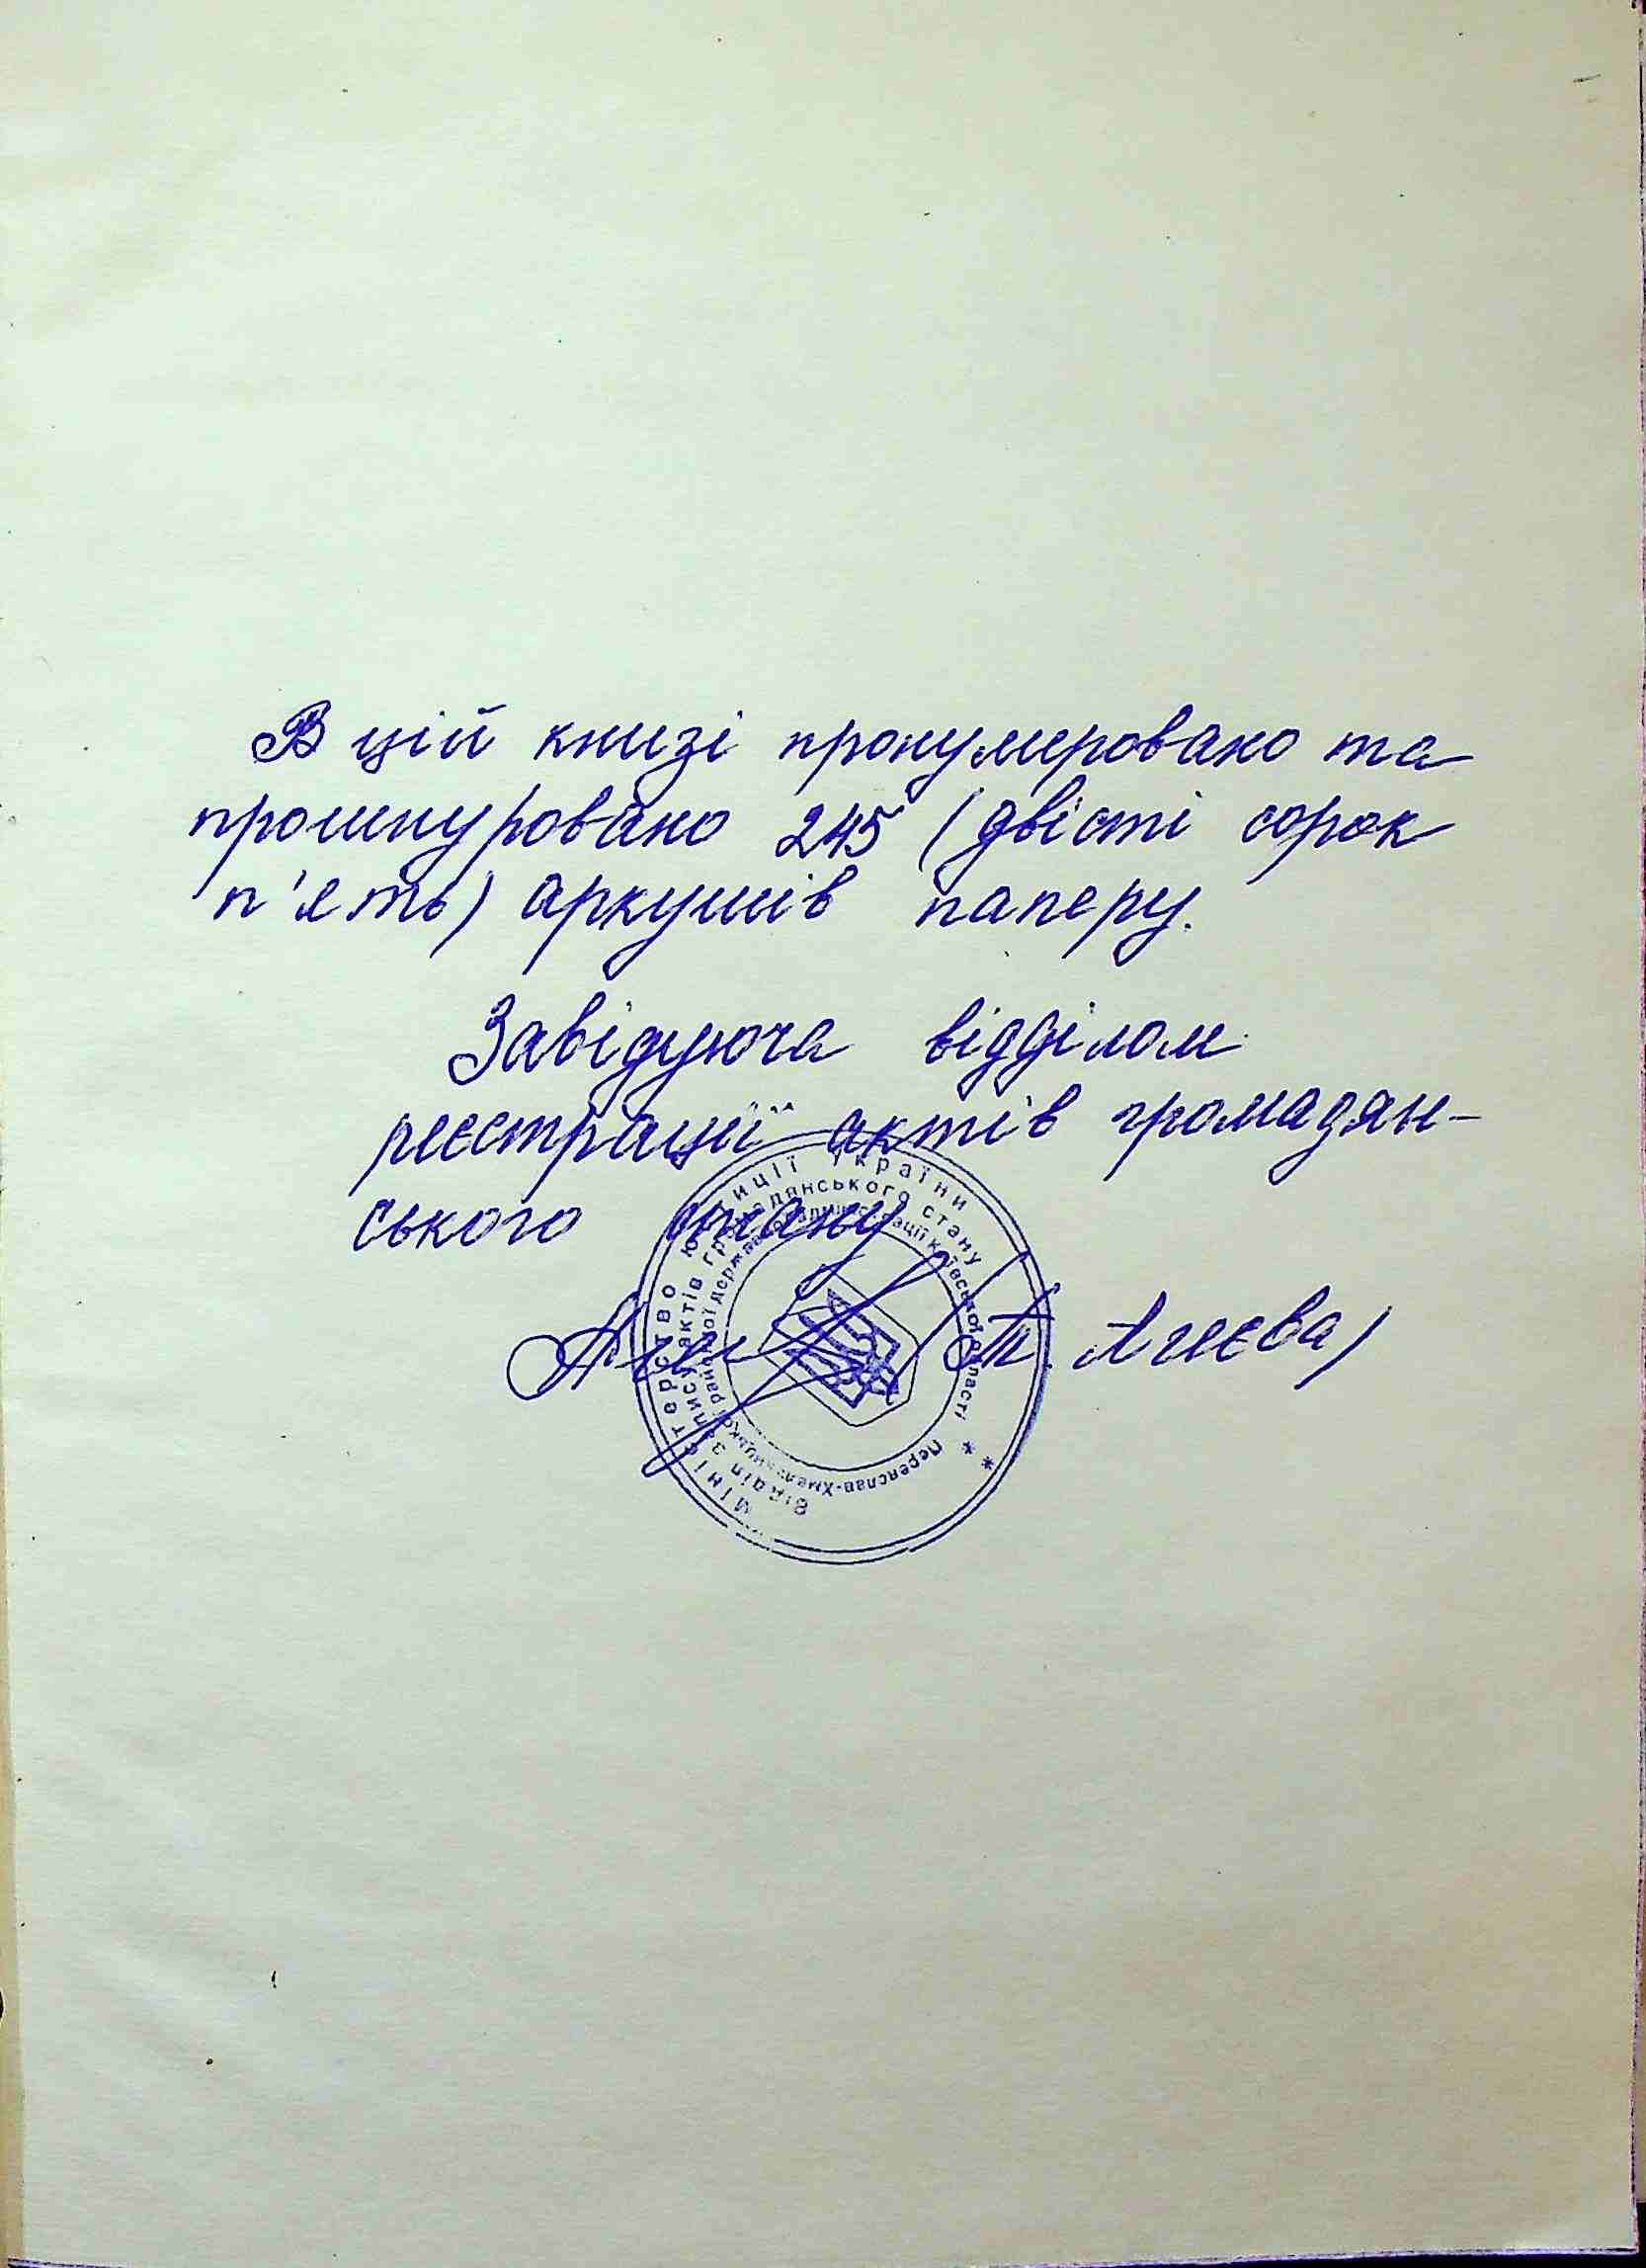 В цій книзі пронумеровано та
прошнуровано 245 (двісті сорок
п'ять) аркушів паперу.
Завідуюча відділом
реєстрації актів громадян-
ського стану
(Т. Агеєва)
Міністерство юстиції України
Відділ запису актів громадянського стану
Переяслав-Хмельницької районної державної адміністрації Київської області